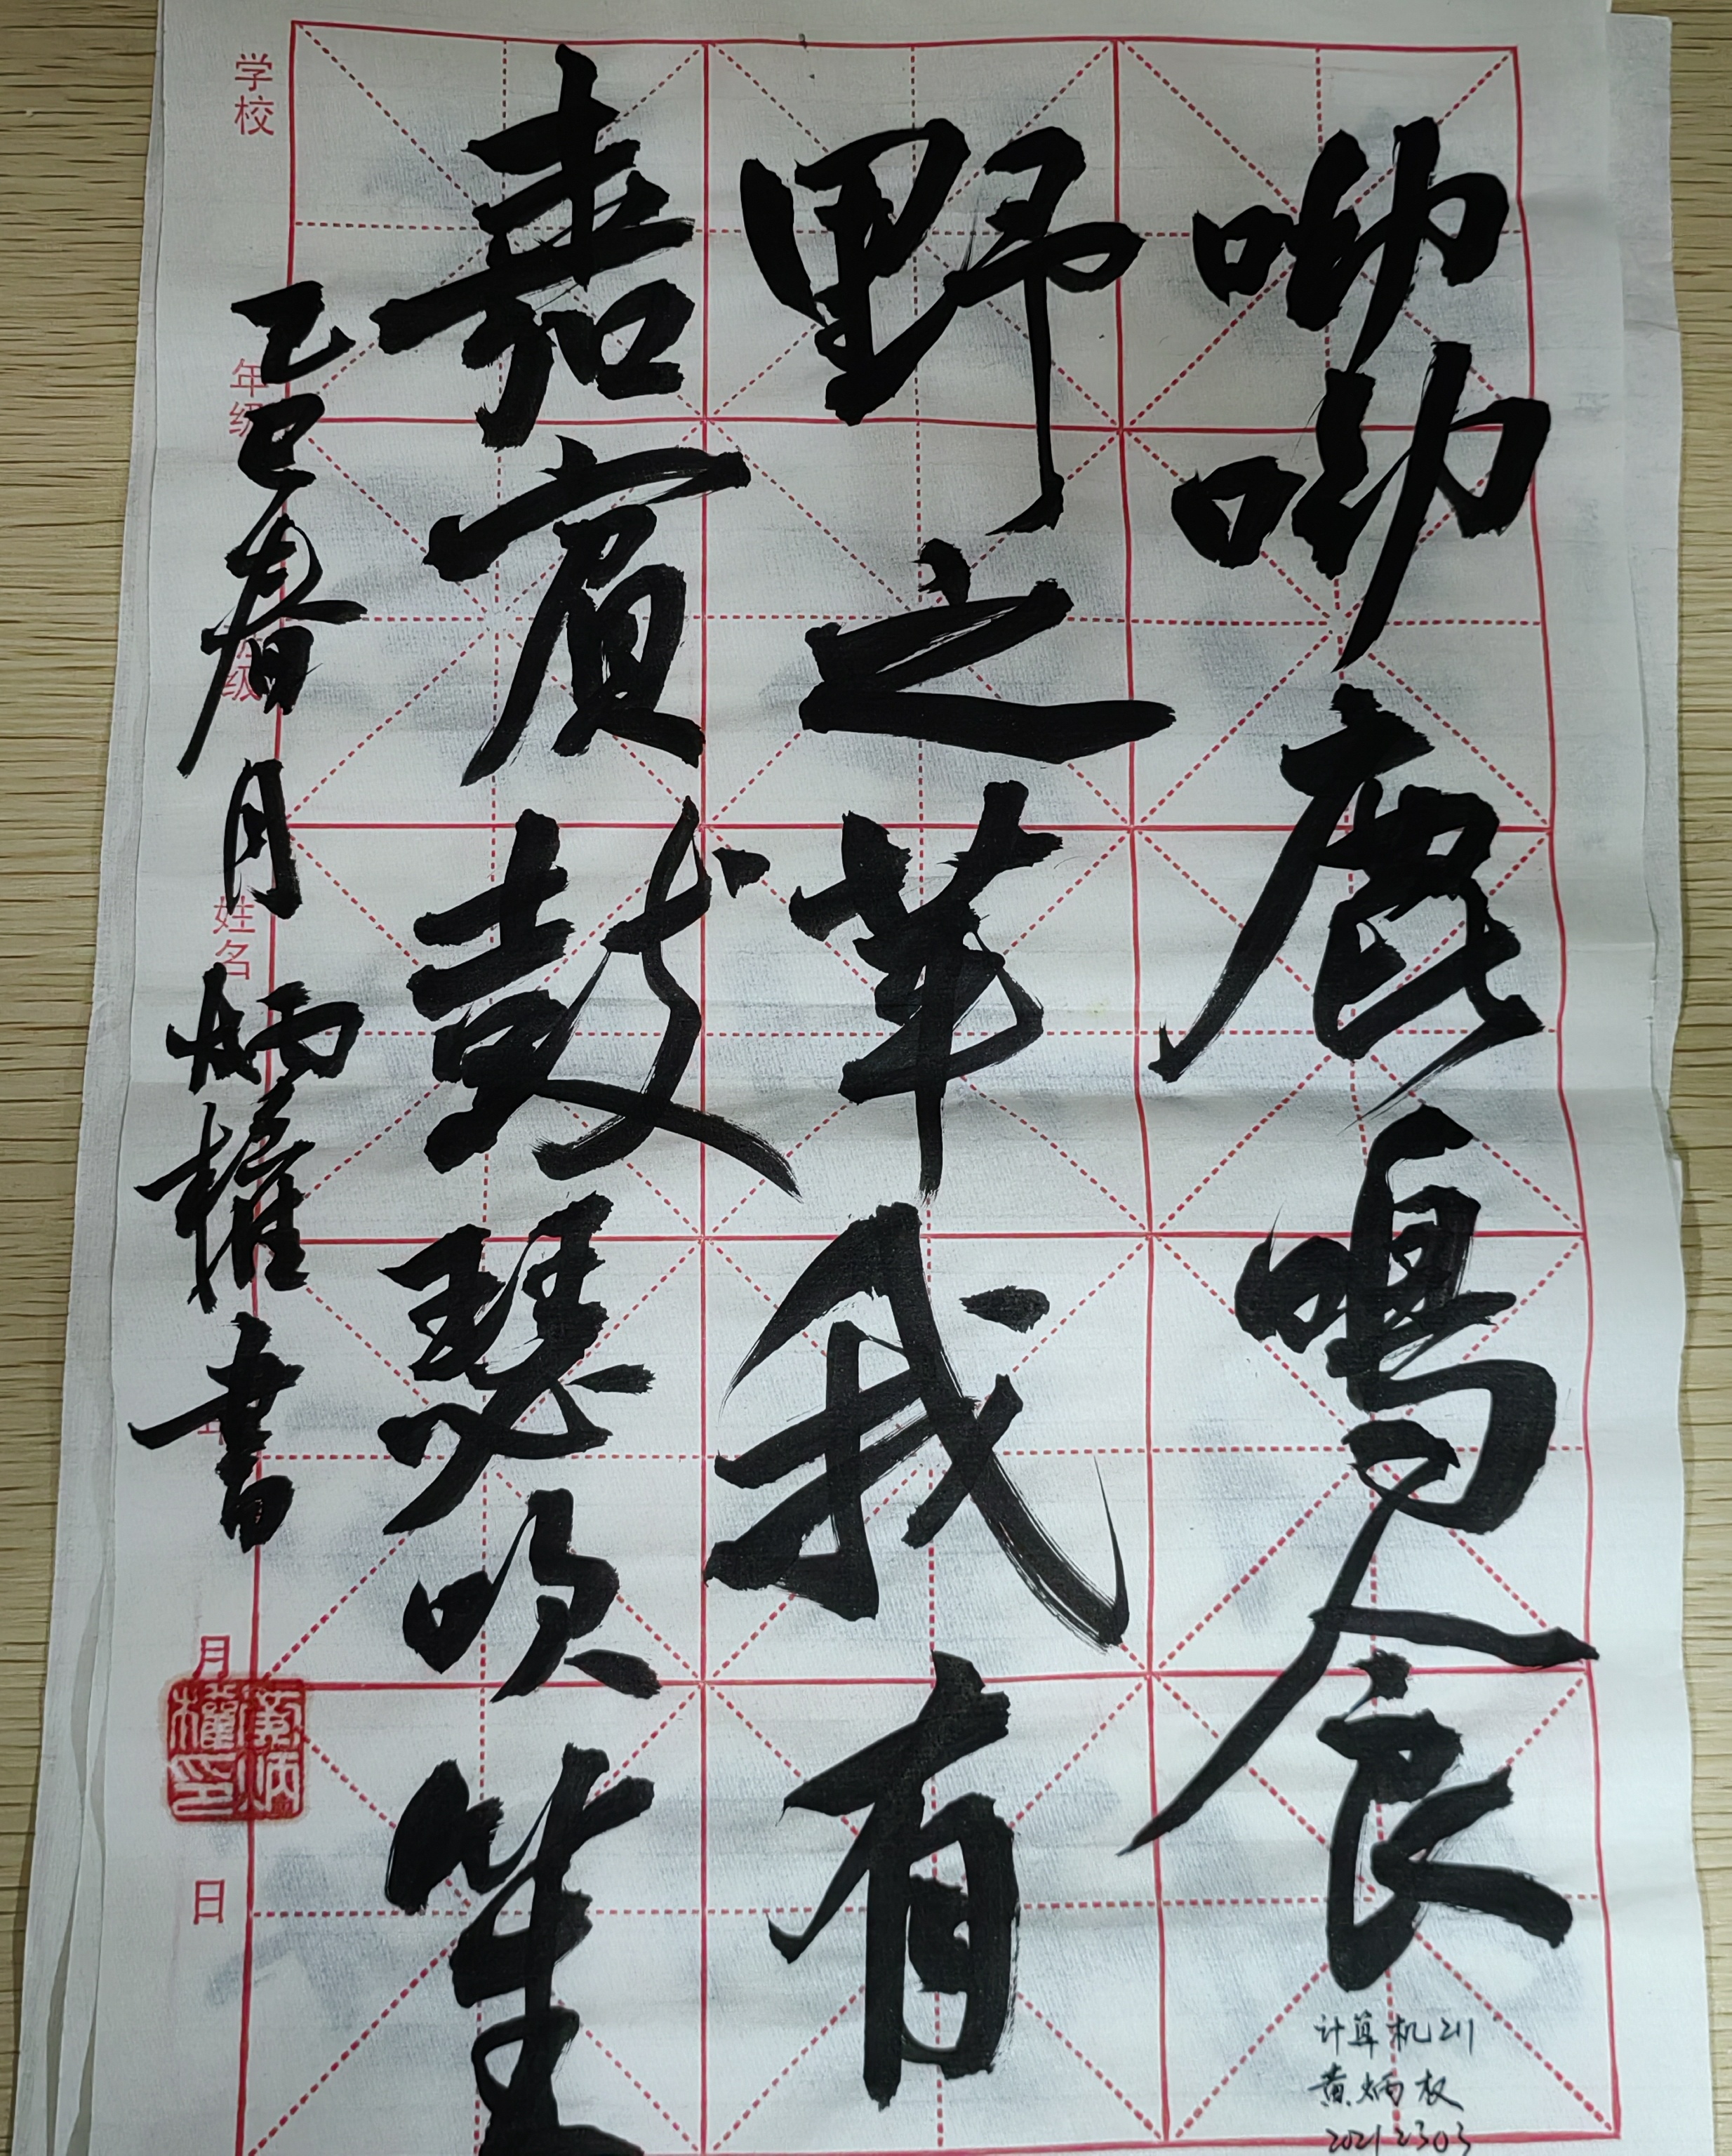 呦呦鹿鳴食
野之苹我有
嘉賓鼓瑟吹笙
乙巳春月炳權書
黄炳權印
学校
年级
级
姓名
月
日
计算机211
黄炳权
20212303